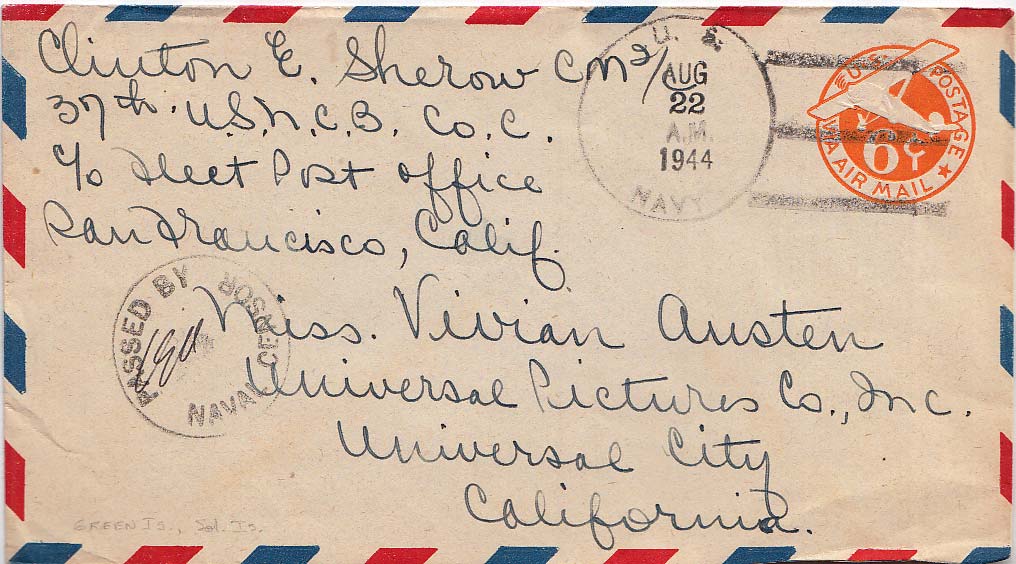 Clinton E. Sherow CM2/
37th. U.S.N.C.B. Co. C.
c/o Fleet Post office
San Francisco, Calif.
U. S.
AUG
22
A.M.
1944
NAVY
U.S. POSTAGE
6¢
VIA AIR MAIL
PASSED BY
NAVAL CENSOR
Miss. Vivian Austen
Universal Pictures Co., Inc.
Universal City
California.
GREEN IS., Sol. Is.